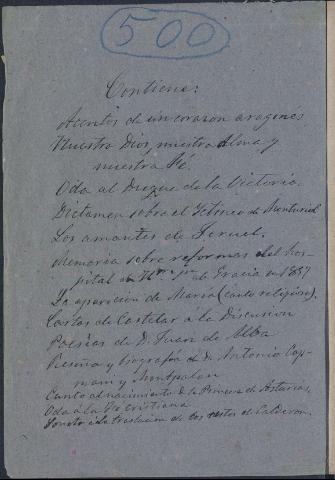 500
Contiene:
Acentos de un corazon aragonés
Nuestro Dios, nuestra Alma y
nuestra Fé.
Oda al Duque de la Victoria.
Dictamen sobre el
Los amantes de Teruel.
Memoria sobre reformas del hos-
pital de Ntra. Sra. de Gracia en 1857
La aparicion de Maria (canto religioso).
Cartas de Castelar á la Discusion
Poesias de D. Juan de Alba
Reseña y biografia de D. Antonio Cap-
mani y Montpalau
Canto al nacimiento de la Princesa de Asturias
Oda á la Fé cristiana
Soneto á la traslacion de los restos de Calderon.